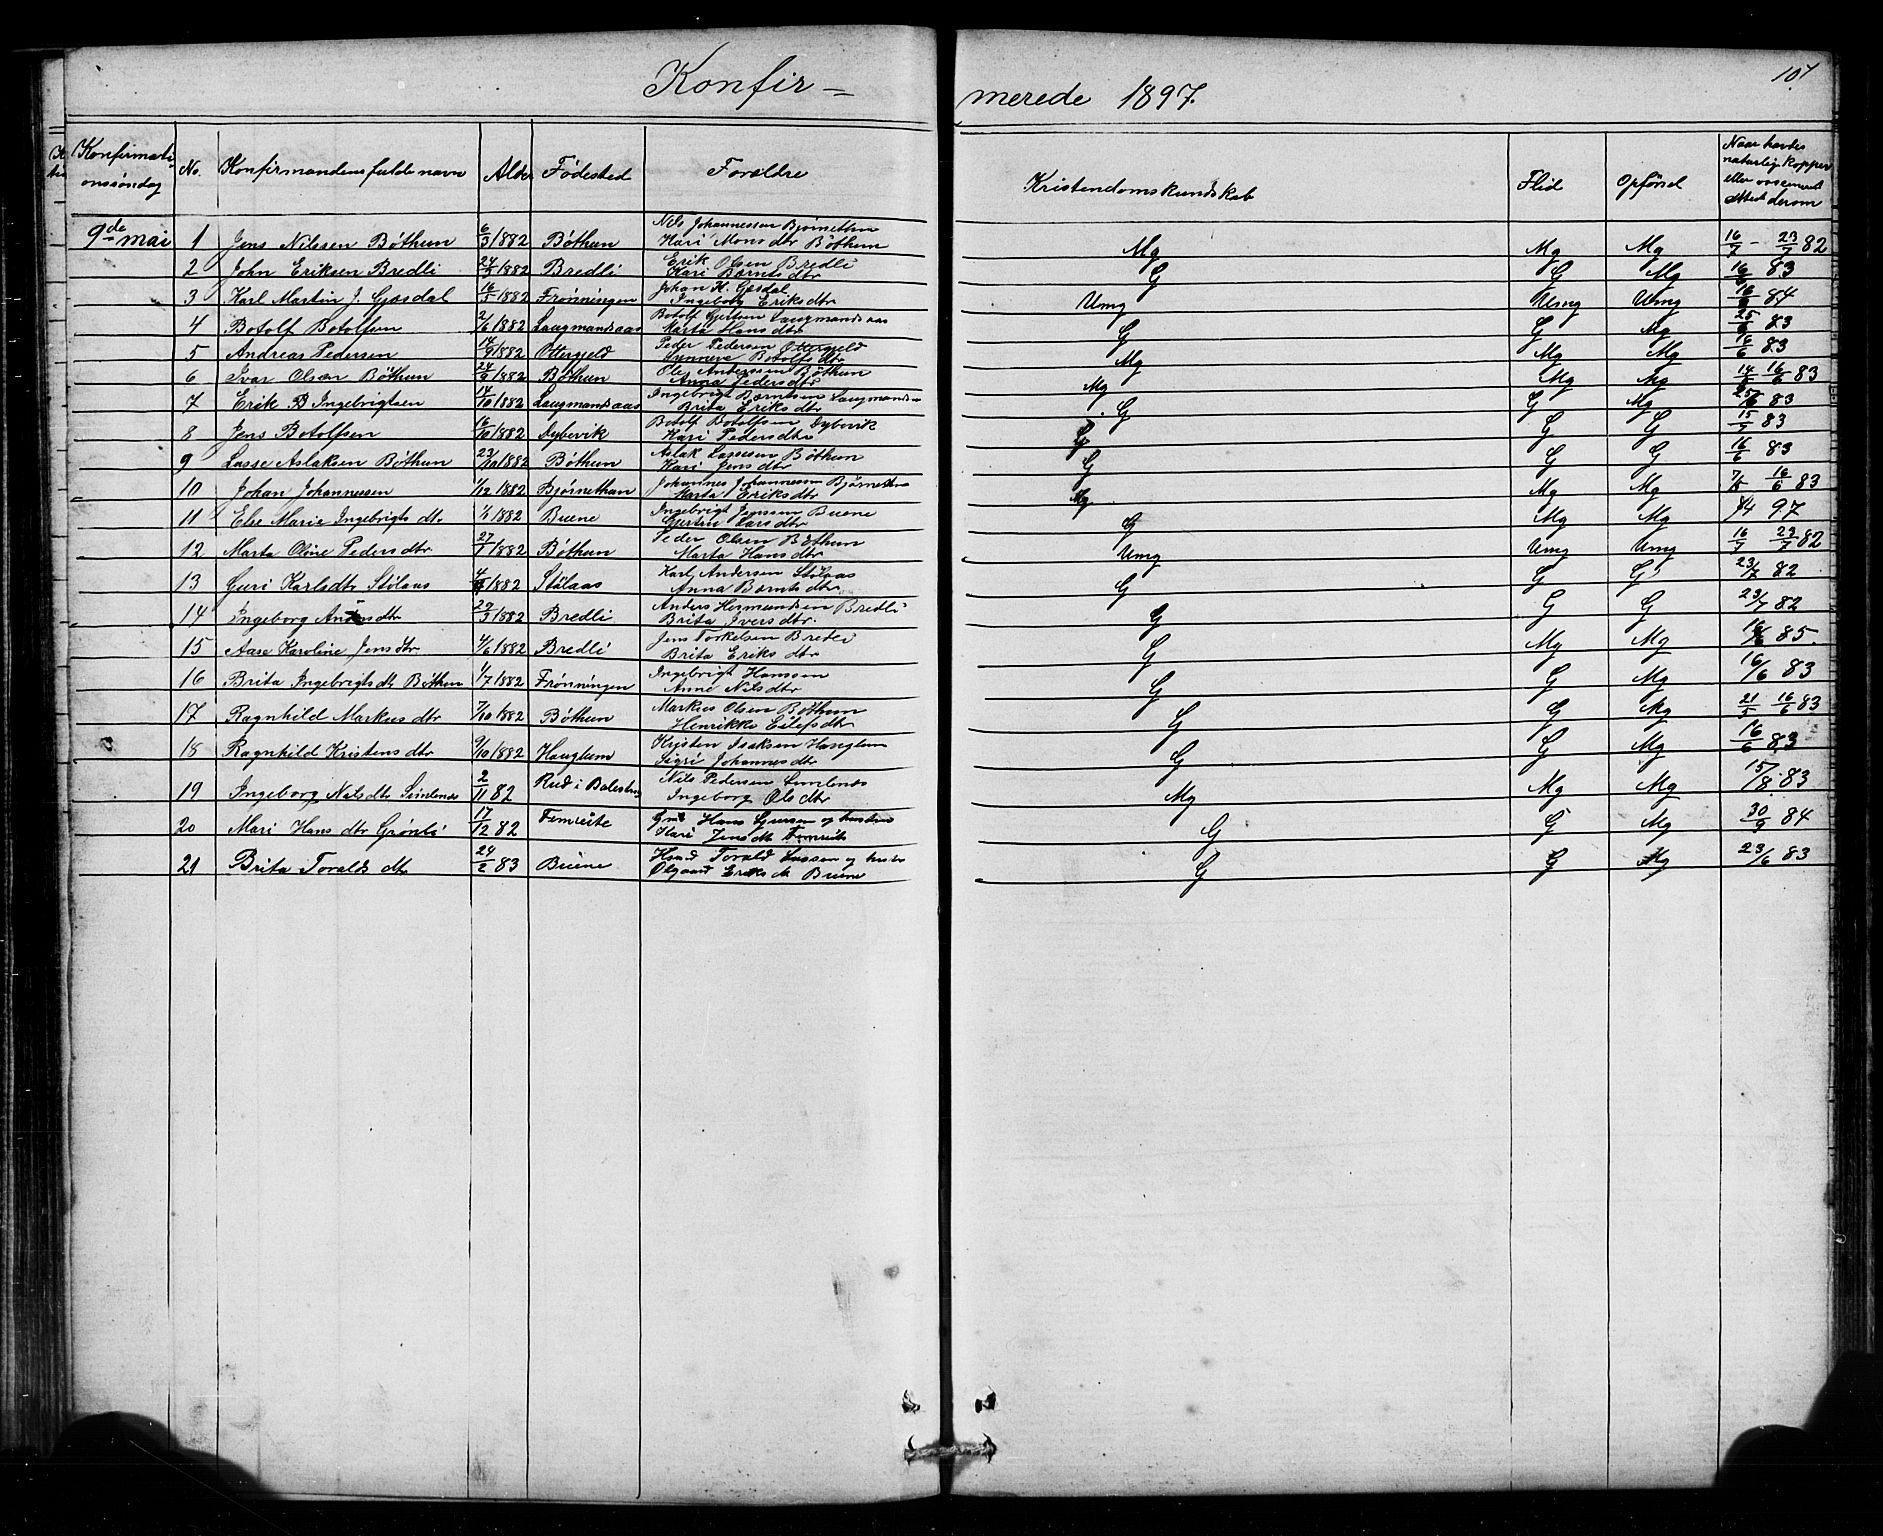 107
Konfir = merede 1897.
Konfirmati-onssøndag No. Konfirmandens fulde navn Alder Fødested Forældre Kristendomskundskab Flid Opførsel Naar havdes naturlig kopper eller vaccineret attest derom
9de mai 1 Jens Nilssen Bøthun 6/3 1882 Bøthun Nils Johannessen Bjørnethun Kari Monsdtr Bøthun Mg Mg Mg 16/7 - 23/7 82
2 John Eriksen Bredli 1882 Bredli Erik Olsen Bredli Kari Berntsdtr G G Mg 83
3 Karl Martin J. Gjesdal 16/5 1882 Frønningen Johan K. Gjesdal Ingeborg Eriksdtr Umg Umg Umg 84
4 Botolf Botolfsen 2/6 1882 Laugmandsaas Botolf Gjertsen Laugmandsaas Marta Hansdtr G G Mg 83
5 Andreas Pedersen 1882 Ottergjeld Peder Pedersen Ottergjeld Synneve Botolfsdtr Mg Mg Mg 16/6 83
6 Ivar Olsen Bøthun 1882 Bøthun Ole Anderssen Bøthun Anna Pedersdtr Mg Mg Mg 16/6 83
7 Erik B Ingebrigtsen 14/10 1882 Laugmandsaas Ingebrigt Berntsen Laugmandsa Brita Eriksdtr G G Mg 83
8 Jens Botolfsen 1882 Dybevik Botolf Botolfsen Dybevik Kari Pedersdtr G G G 15/7 83
9 Lasse Aslaksen Bøthun 23/10 1882 Bøthun Aslak Lassesen Bøthun Kari Jensdtr G G G 16/6 83
10 Johan Johannesen 1/12 1882 Bjørnethun Johannes Johannessen Bjørnethun Marta Eriksdtr Mg Mg Mg 16/6 83
11 Else Marie Ingebrigtsdtr. 1/1 1882 Buene Ingebrigt Jenssen Buene Gjertru Larsdtr G Mg Mg 97
12 Marta Oline Pedersdtr 27/1 1882 Bøthun Peder Olsen Bøthun Marta Hansdtr Umg Umg Umg 16/7 23/7 82
13 Guri Karlsdtr Stølaas 1882 Stølaas Karl Andersen Stølaas Anna Berntsdtr G G G 23/7 82
14 Ingeborg Andersdtr 29/3 1882 Bredli Anders Hermundsen Bredli Brita Iversdtr. G G G 23/7 82
15 Aase Karoline Jensdtr 4/6 1882 Bredli Jens Torkelsen Bredli Brita Eriksdtr G Mg Mg 85.
16 Brita Ingebrigtsdt. Bøthun 1/7 1882 Frønningen Ingebrigt Hanssen Anne Nilsdtr G G Mg 16/6 83
17 Ragnhild Markusdtr 7/10 1882 Bøthun Markus Olsen Bøthun Henrikke Eilefsdtr G G Mg 21/5 16/6 83
18 Ragnhild Kristensdtr 9/10 1882 Hauglum Kristen Isaksen Hauglum Sigri Johannesdtr G G Mg 16/6 83
19 Ingeborg Nilsdtr Simlenes 2/11 82 Rud i Balestrand Nils Pedersen Simlenes Ingeborg Olsdtr Mg Mg Mg 15/8. 83
20 Mari Hansdtr Grønli 17/12 82 Femreite Hans Sjursen og hustru Kari Jensdt Femreite G G Mg 30/9 84
21 Brita Toraldsdt 24/2 83 Buene Torald Lassen og hustr Olgaard Eriksdt Buene G G Mg 23/6 83